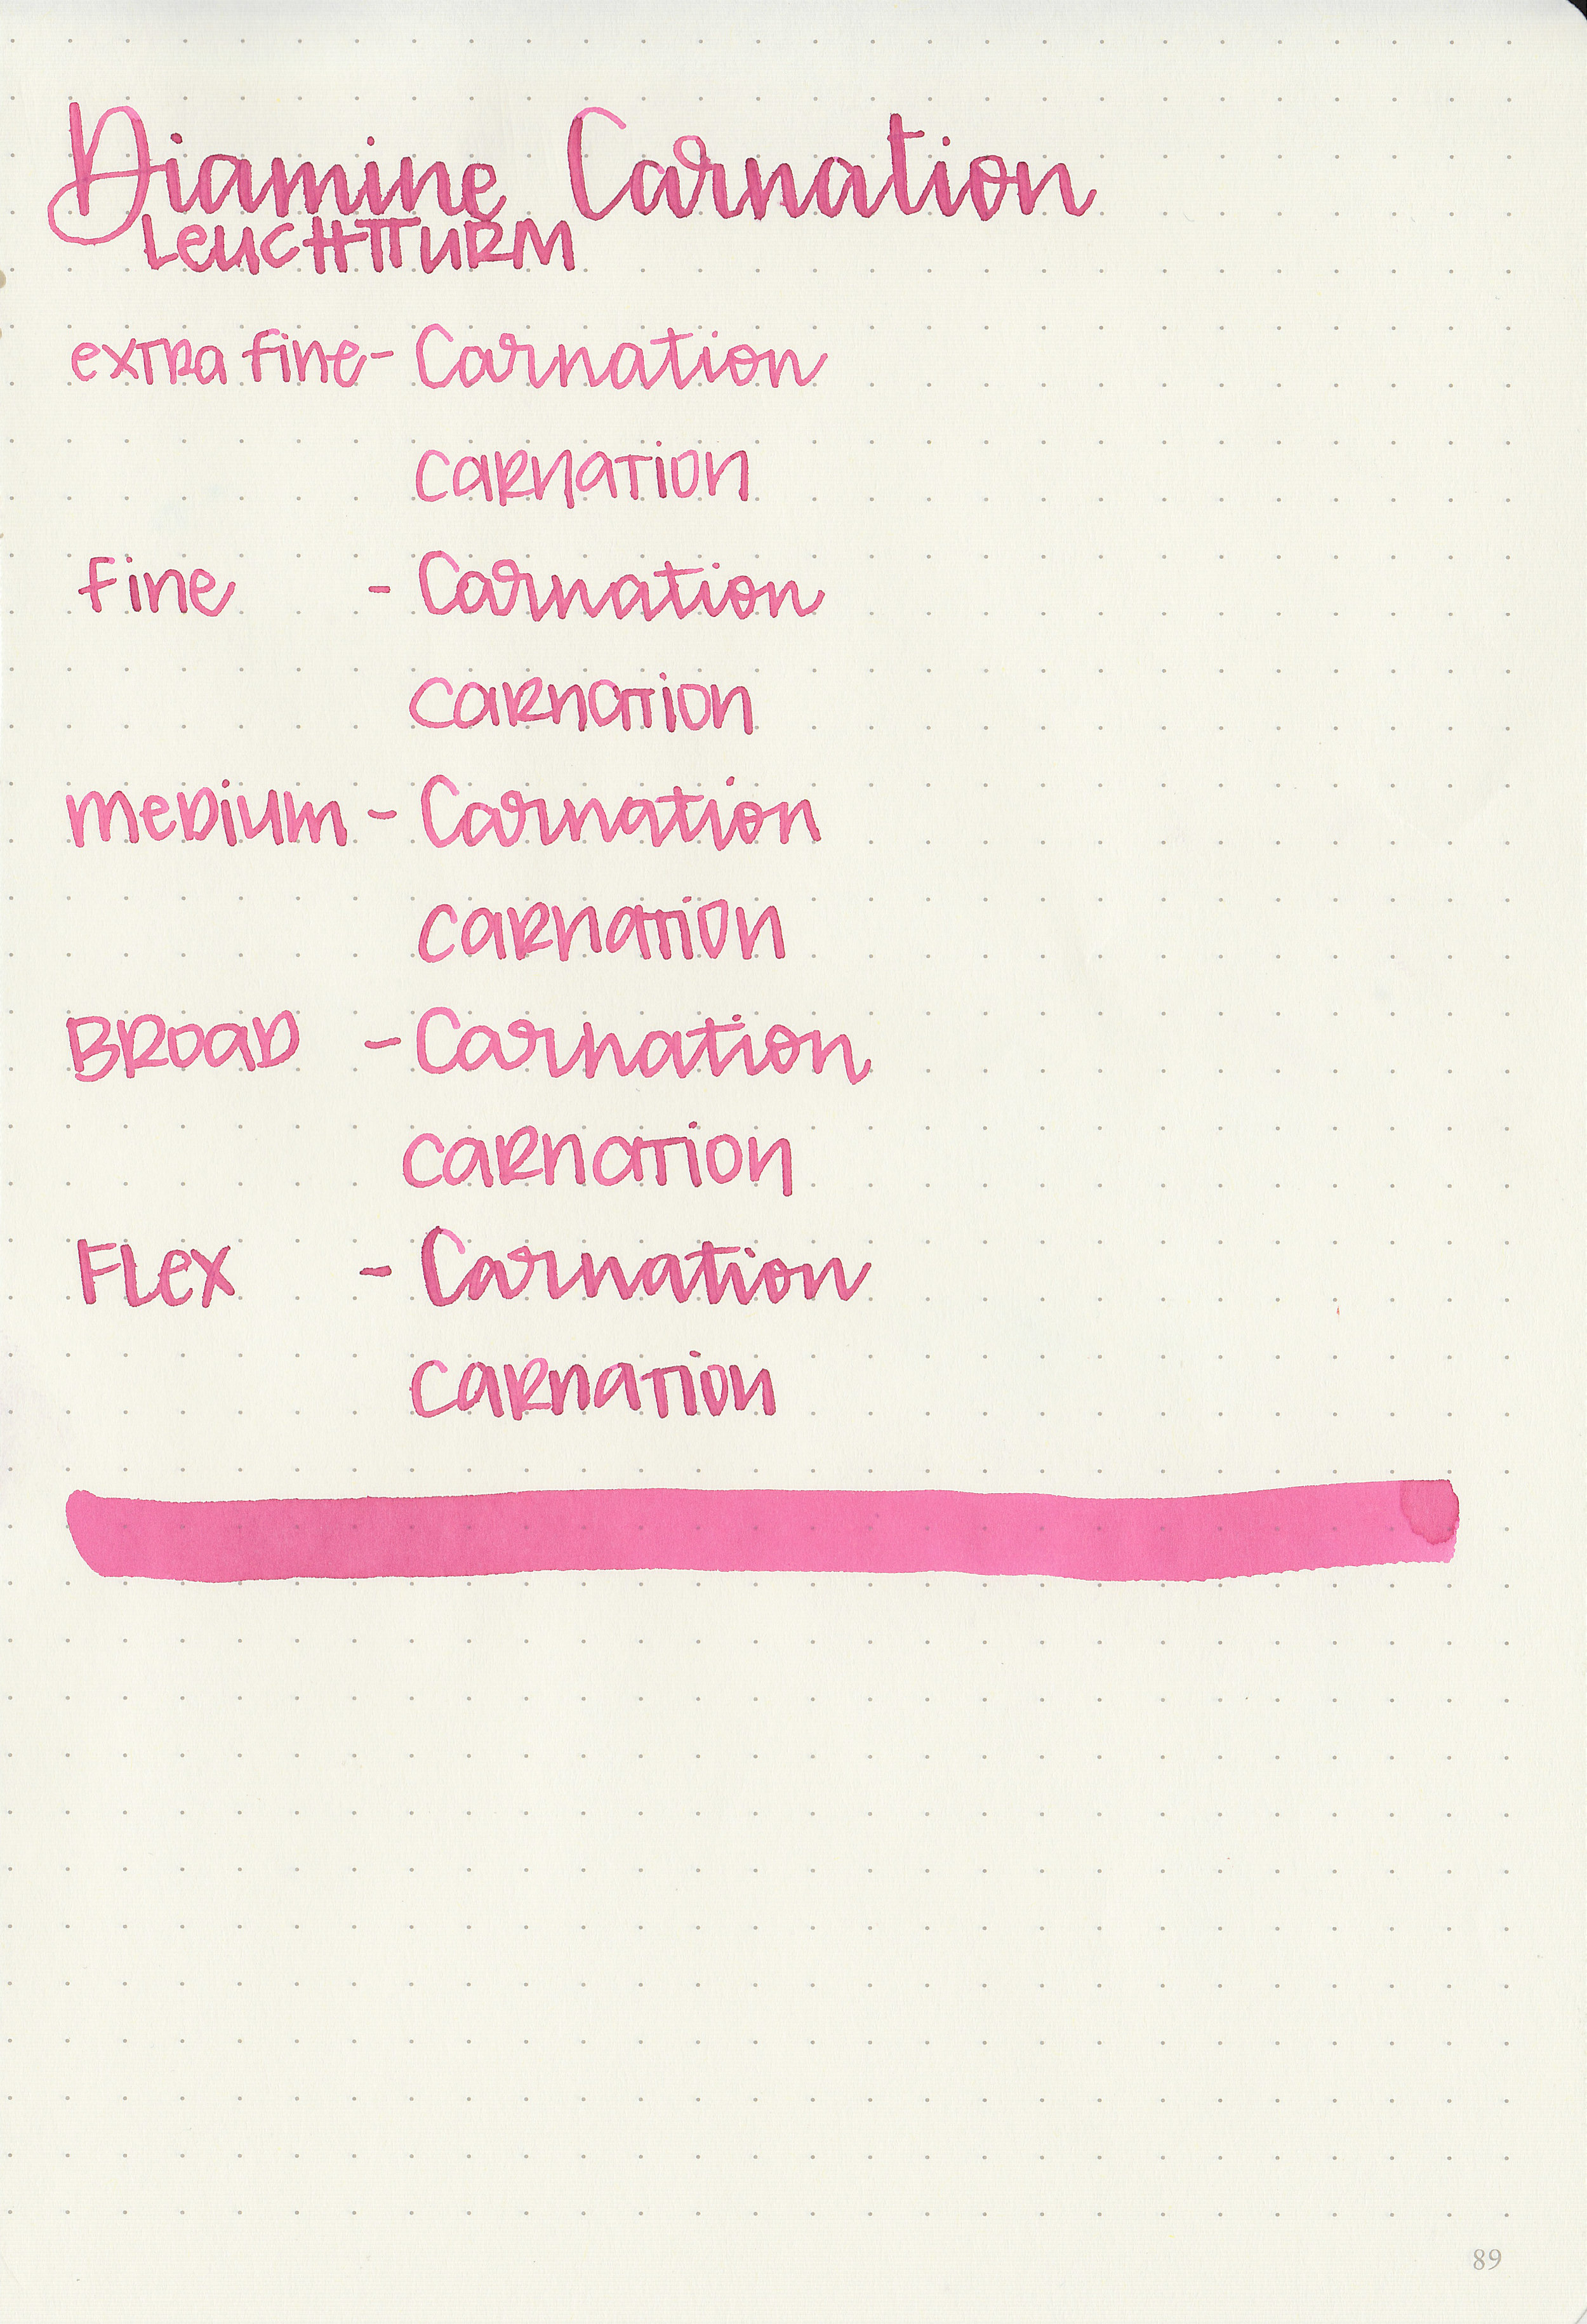 Diamine Carnation
LEUCHTTURM
extra fine - Carnation
carnation
fine - Carnation
carnation
medium - Carnation
carnation
BROAD - Carnation
carnation
FLEX - Carnation
carnation
89